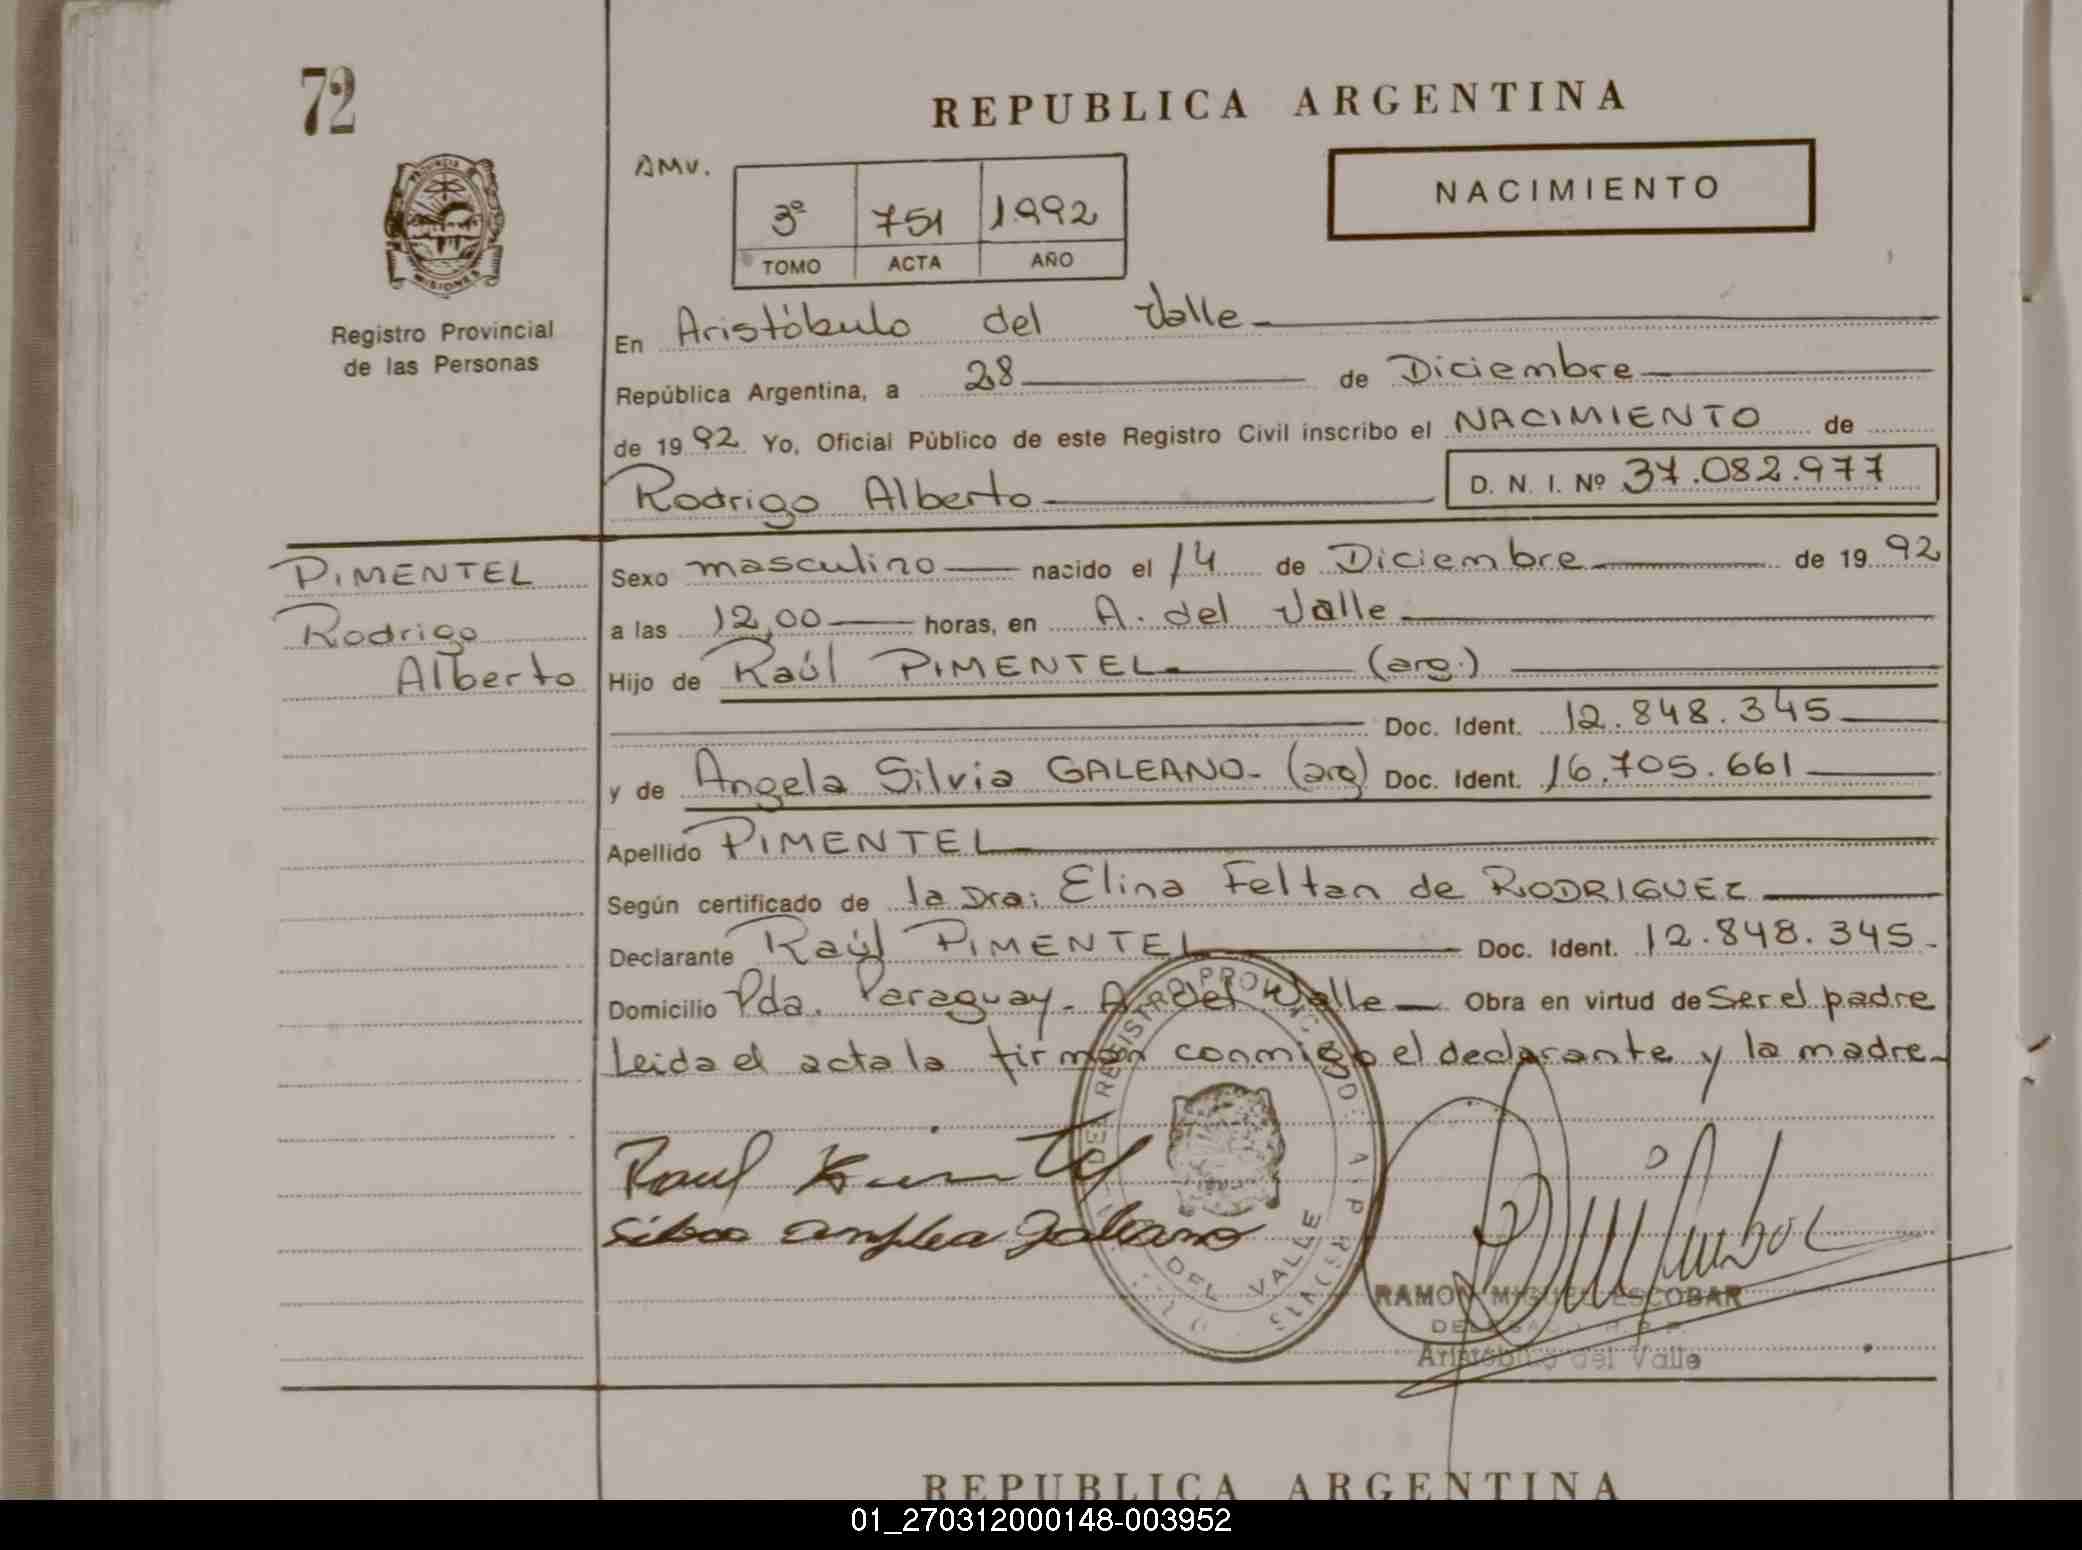 72
REPUBLICA ARGENTINA
AMV.
NACIMIENTO
3º 751 1992
TOMO ACTA AÑO
PROVINCIA DE
MISIONES
Registro Provincial
de las Personas
En Aristóbulo del Valle
República Argentina, a 28 de Diciembre
de 1992 Yo, Oficial Público de este Registro Civil inscribo el NACIMIENTO de
Rodrigo Alberto D. N. I. Nº 37.082.977
PIMENTEL
Rodrigo
Alberto
Sexo masculino nacido el 14 de Diciembre de 1992
a las 12,00 horas, en A. del Valle
Hijo de Raúl PIMENTEL (arg.)
Doc. Ident. 12.848.345
y de Angela Silvia GALEANO- (arg) Doc. Ident. 16.705.661
Apellido PIMENTEL
Según certificado de la Dra: Elina Feltan de RODRIGUEZ
Declarante Raúl PIMENTEL Doc. Ident. 12.848.345-
Domicilio Pda. Paraguay- A. del Valle Obra en virtud de Ser el padre
Leida el acta la firman conmigo el declarante y la madre-
Raul
Galeano
DEL VALLE
RAMON MIGUEL ESCOBAR
Aristóbulo del Valle
REPUBLICA ARGENTINA
01_270312000148-003952